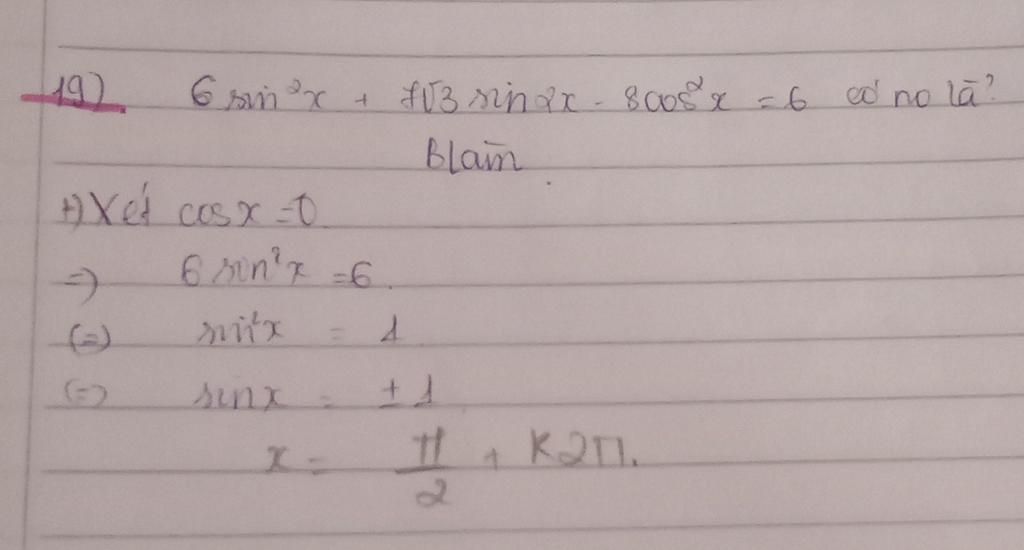 19) 6 sin²x + 7√3 sin2x - 8cos²x = 6 có no là?
Blàm
+) Xét cosx = 0
=) 6 sin²x = 6.
(=) sin²x = 1
(=) sinx = ± 1
x = π/2 + K2π.